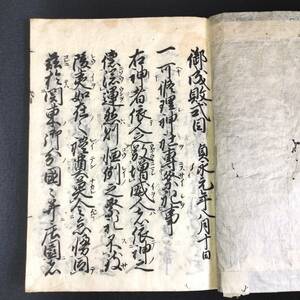 御成敗式目 貞永元年八月十日
一 可修理神社専祭祀事
右神者依人之敬増威人者依神之
徳添運然則恒例之祭祀不致
陵夷如在之礼奠莫令怠慢因
茲於関東御分国々并庄園者